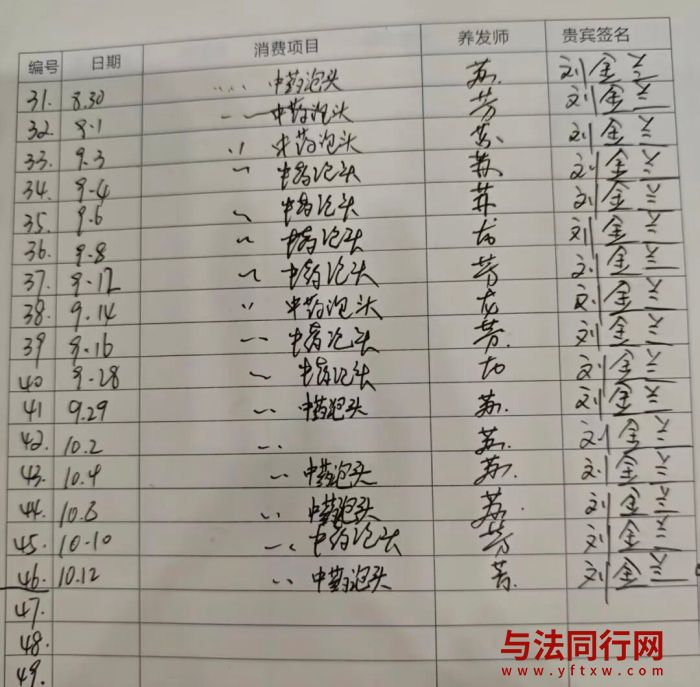 编号 日期 消费项目 养发师 贵宾签名
31. 8.30 〃 中药泡头 苏. 刘金兰
32. 9.1 〃 中药泡头 芳 刘金兰
33. 9.3 〃 中药泡头 苏. 刘金兰
34. 9.4 〃 中药泡头 苏 刘金兰
35. 9.6 〃 中药泡头 苏 刘金兰
36. 9.8 〃 中药泡头 龙 刘金兰
37. 9.12 〃 中药泡头 芳 刘金兰
38. 9.14 〃 中药泡头 龙 刘金兰
39 9.16 〃 中药泡头 芳. 刘金兰
40 9.28 〃 中药泡头 刘金兰
41 9.29 〃 中药泡头 苏. 刘金兰
42. 10.2 〃 苏. 刘金兰
43. 10.4 〃 中药泡头 苏. 刘金兰
44. 10.8 〃 中药泡头 苏. 刘金兰
45. 10.10 〃 中药泡头 芳 刘金兰
46. 10.12 〃 中药泡头 芳. 刘金兰
47.
48.
49.
与法同行网
www.yftxw.com